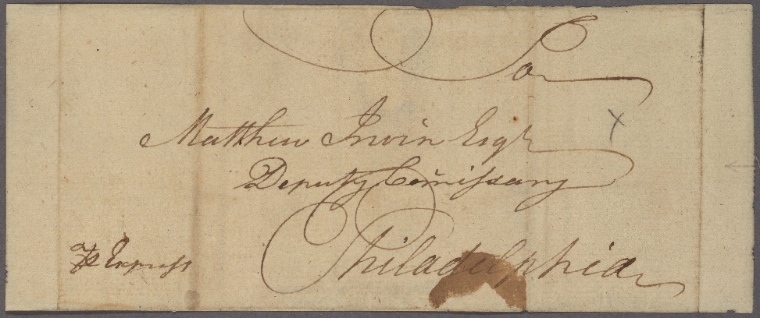 To
Matthew Irwin Esqr
Deputy Com̄issary
Philadelphia
⅌ Express